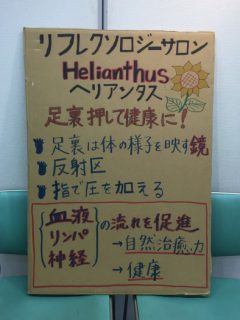 リフレクソロジーサロン
Helianthus
ヘリアンタス
足裏押して健康に!
足裏は体の様子を映す鏡
反射区
指で圧を加える
血液
リンパ
神経
の流れを促進
→自然治癒力
→健康